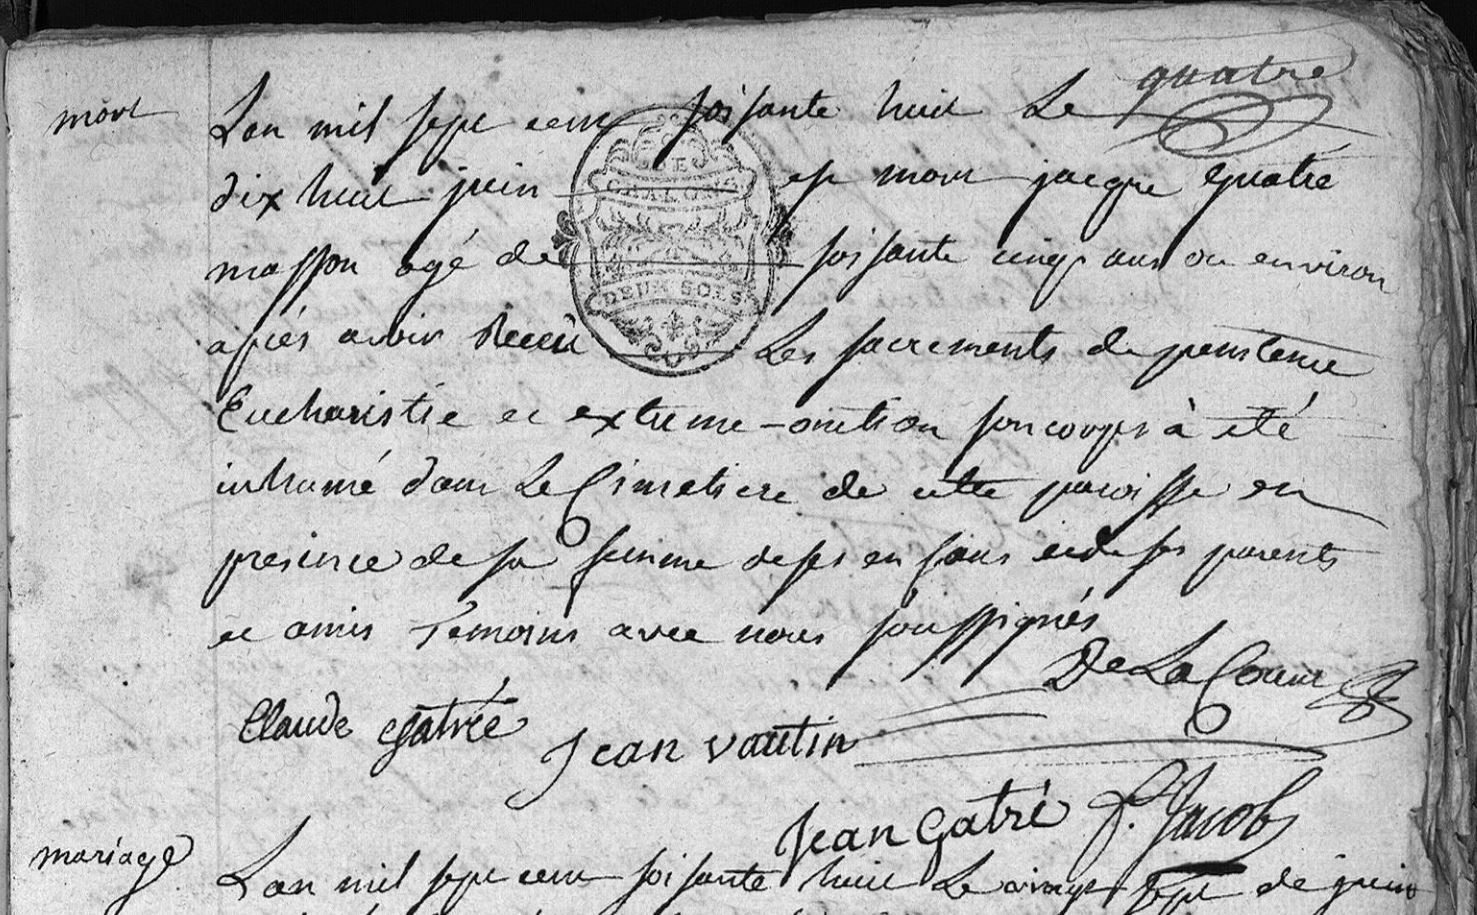 quatre
mort
Lan mil sept cent soissante huit Le
dix huit juin est mort jacque Quatré
masson agé de soissante cinq ans ou environ
aprés avoir Receu Les sacrements de penitence
Eucharistie et extreme-onction son corps à eté
inhumé dans Le Cimetiere de cette paroisse en
presence de sa femme de ses enfans et de ses parents
et amis temoins avec nous soussignés
De La Cour
Claude Gatrée
Jean vautin
Jean Gatré P. Jacob
mariage
Lan mil sept cent soissante huit Le vingt sept de juin
GE
CHALONS
DEUX SOLS